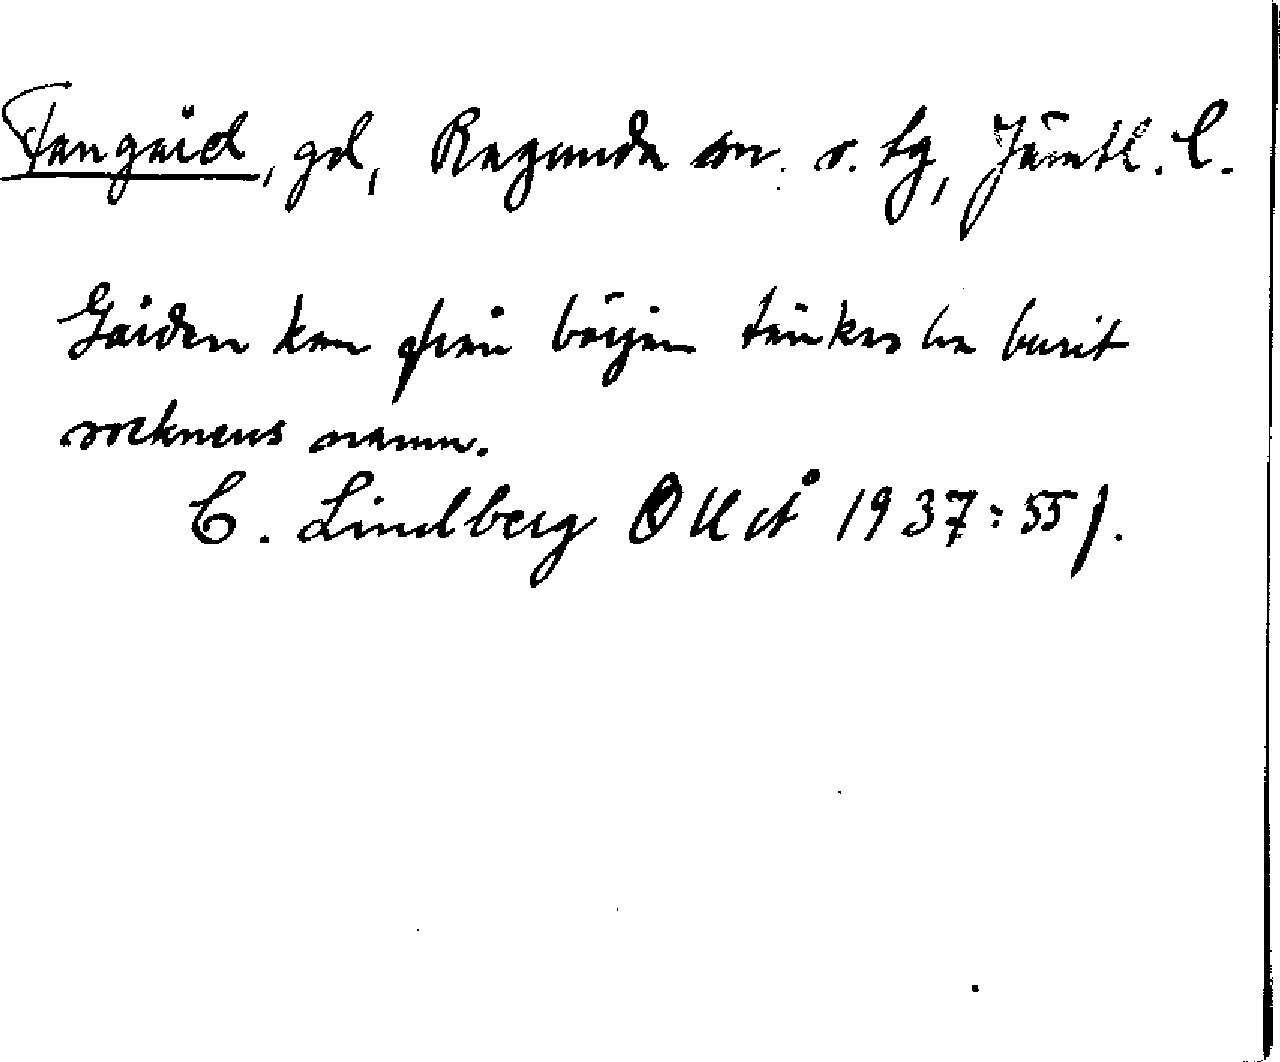 Fangård, gd, Ragunda sn. o. tg, Jämtl. l.
Gården kan från början tänkas ha burit
socknens namn.
C. Lindberg OUÅ 1937: 55f.